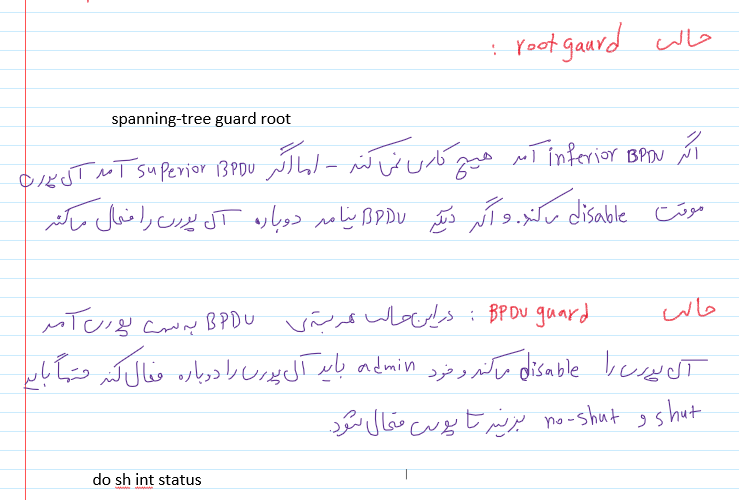 حالت root gaurd :
spanning-tree guard root
اگر inferior BPDU آمد هیچ کاری نمی کند – اما اگر superior BPDU آمد آن پورت
موقت disable می کند. و اگر دیگر BPDU نیامد دوباره آن پورت را فعال میکند
حالت BPDU guard : در این حالت هر بسته ی BPDU به سمت پورت آمد
آن پورت را disable میکند و خود admin باید آن پورت را دوباره فعال کند حتماً باید
shut و no-shut بزنید تا پورت فعال شود.
do sh int status